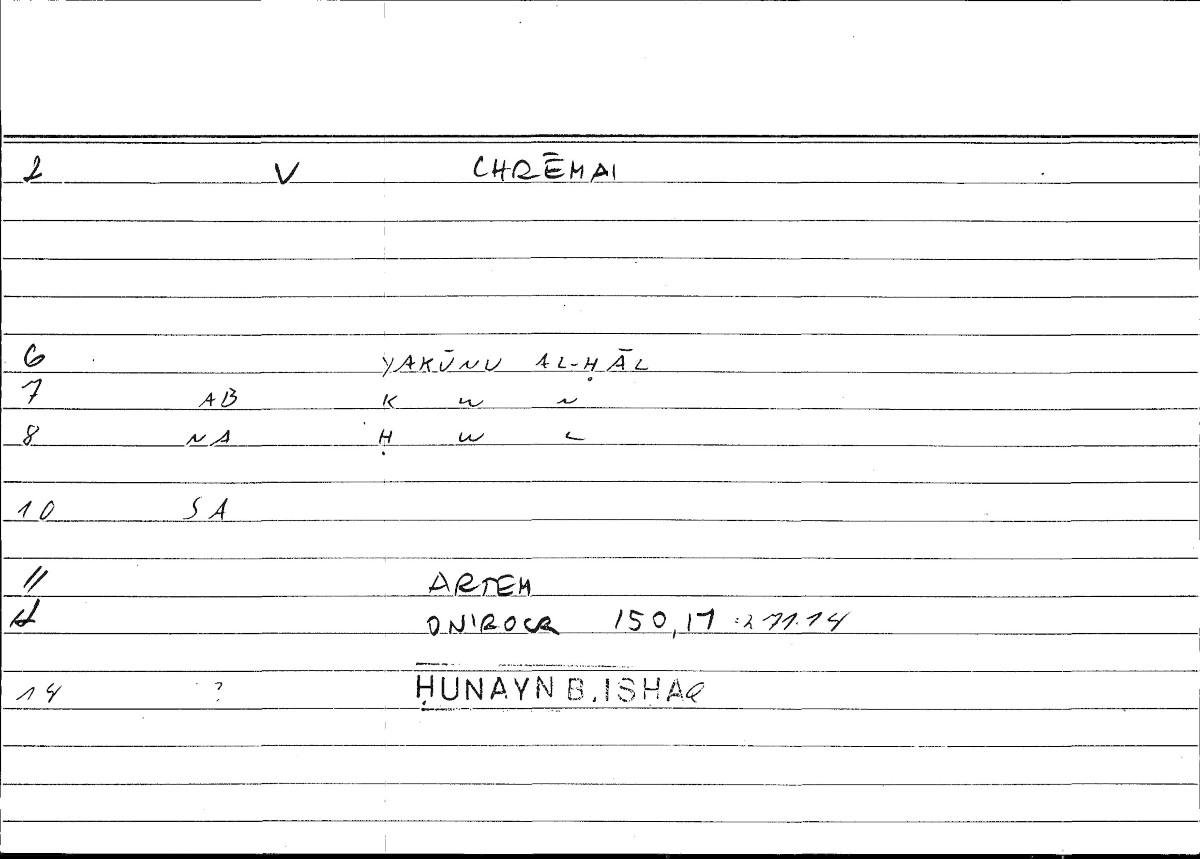 2 V CHRĒMAI
6 YAKŪNU AL-ḤĀL
7 AB K W N
8 NA Ḥ W L
10 SA
11 ARTEM
ONIROCR 150,17 :271.14
14 ? ḤUNAYN B. ISHAQ